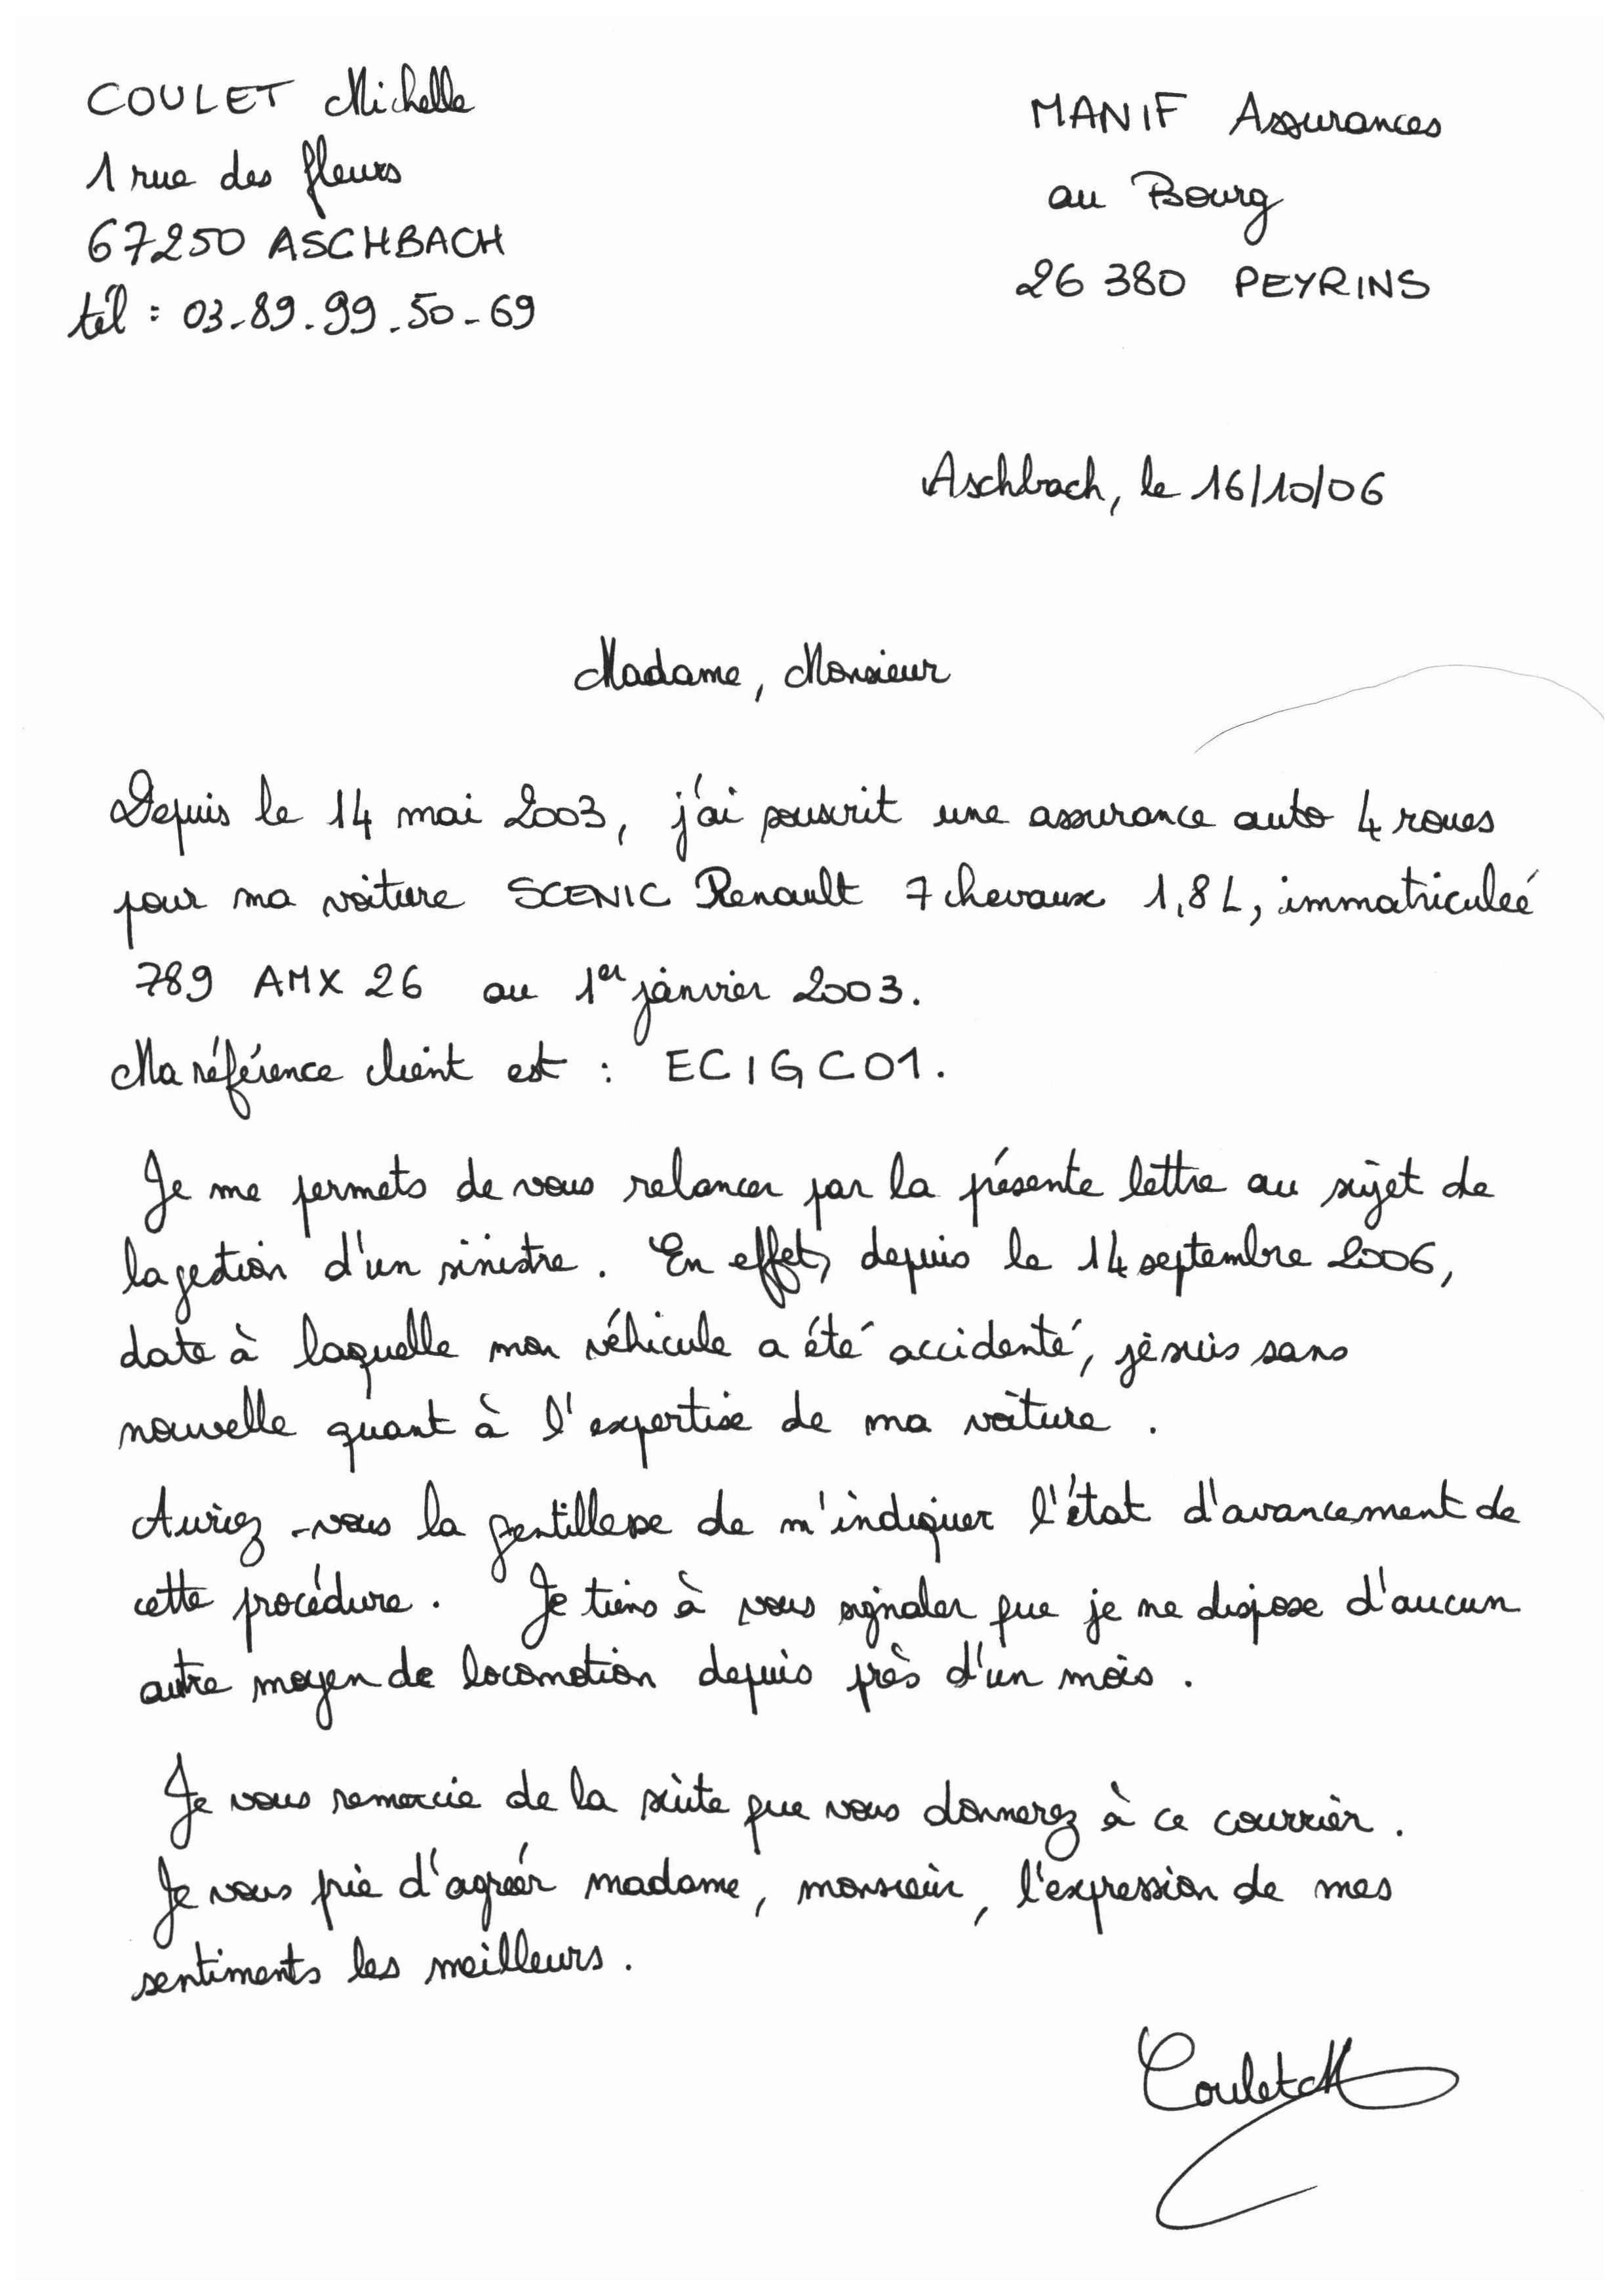 COULET Michelle
1 rue des fleurs
67250 ASCHBACH
tél : 03-89.99.50-69
MANIF Assurances
au Bourg
26 380 PEYRINS
Aschbach, le 16/10/06
Madame, Monsieur
Depuis le 14 mai 2003, j'ai souscrit une assurance auto 4 roues
pour ma voiture SCENIC Renault 7 chevaux 1,8 L, immatriculée
789 AMX 26 au 1er janvier 2003.
Ma référence client est : ECIGC01.
Je me permets de vous relancer par la présente lettre au sujet de
la gestion d'un sinistre. En effet, depuis le 14 septembre 2006,
date à laquelle mon véhicule a été accidenté, je suis sans
nouvelle quant à l'expertise de ma voiture.
Auriez-vous la gentillesse de m'indiquer l'état d'avancement de
cette procédure. Je tiens à vous signaler que je ne dispose d'aucun
autre moyen de locomotion depuis près d'un mois.
Je vous remercie de la suite que vous donnerez à ce courrier.
Je vous prie d'agréer madame, monsieur, l'expression de mes
sentiments les meilleurs.
Coulet M